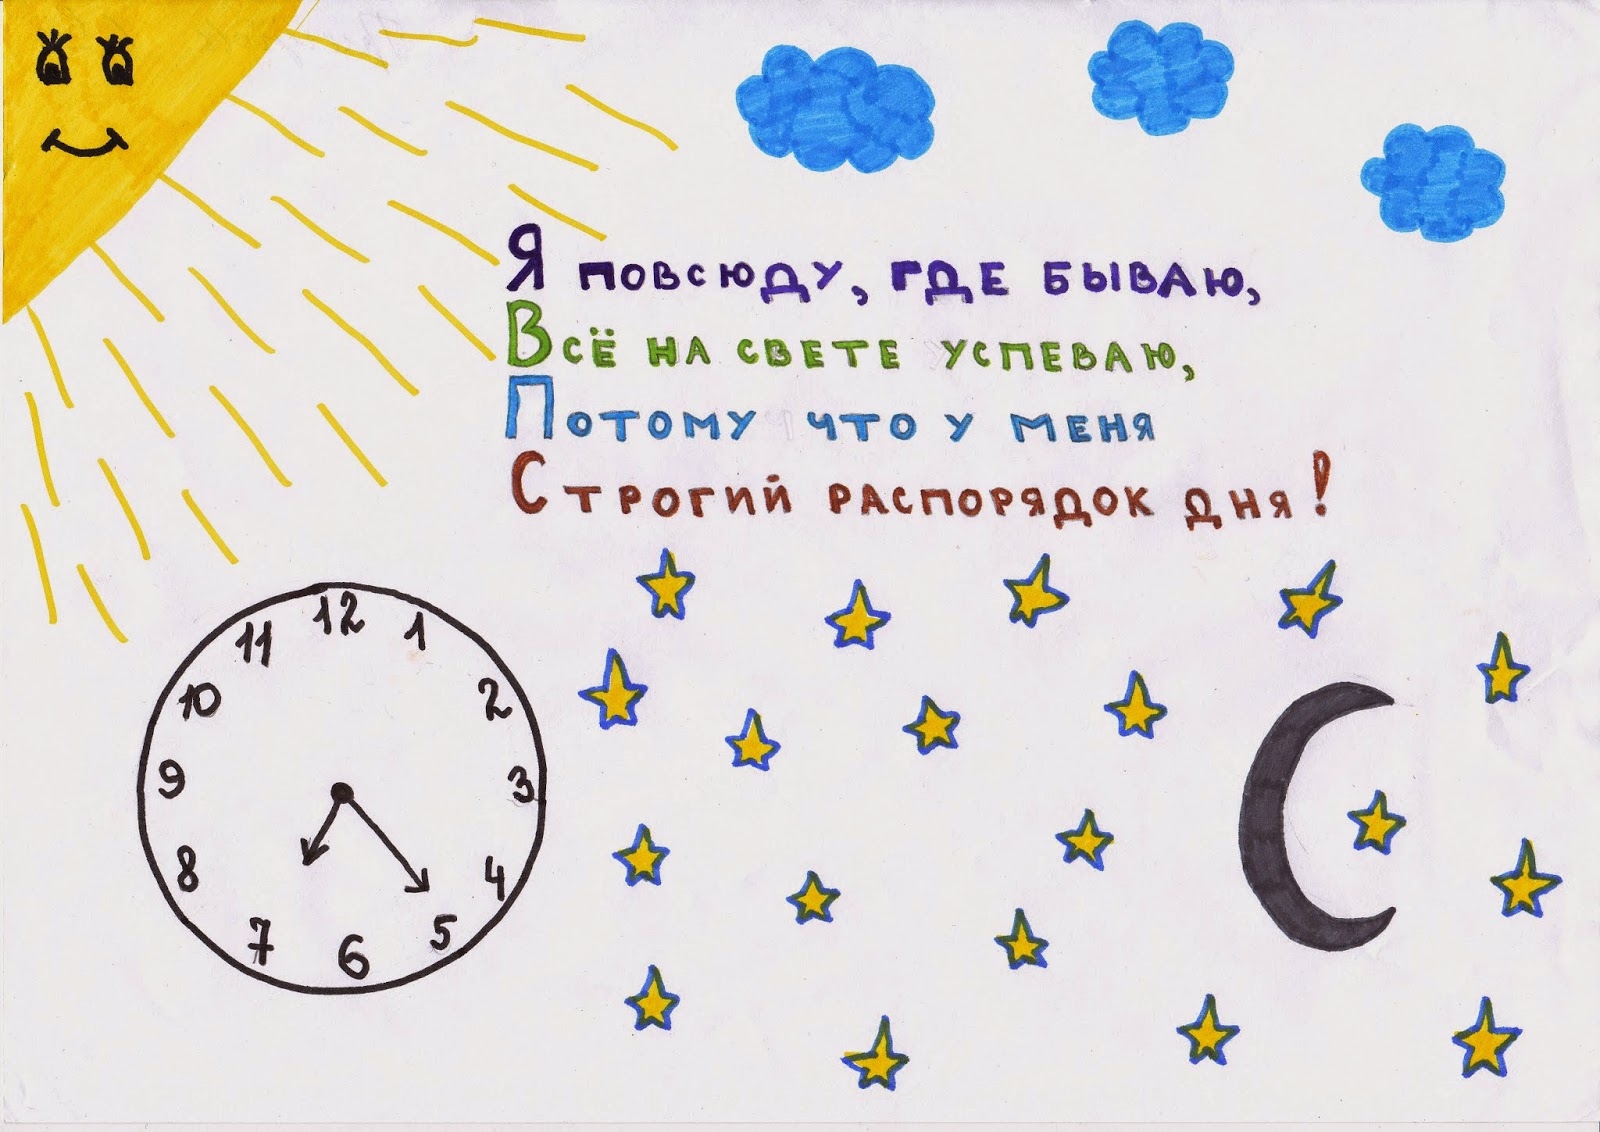 Я повсюду, где бываю,
Всё на свете успеваю,
Потому что у меня
Строгий распорядок дня!
12
11
1
10
2
9
3
8
4
7
5
6